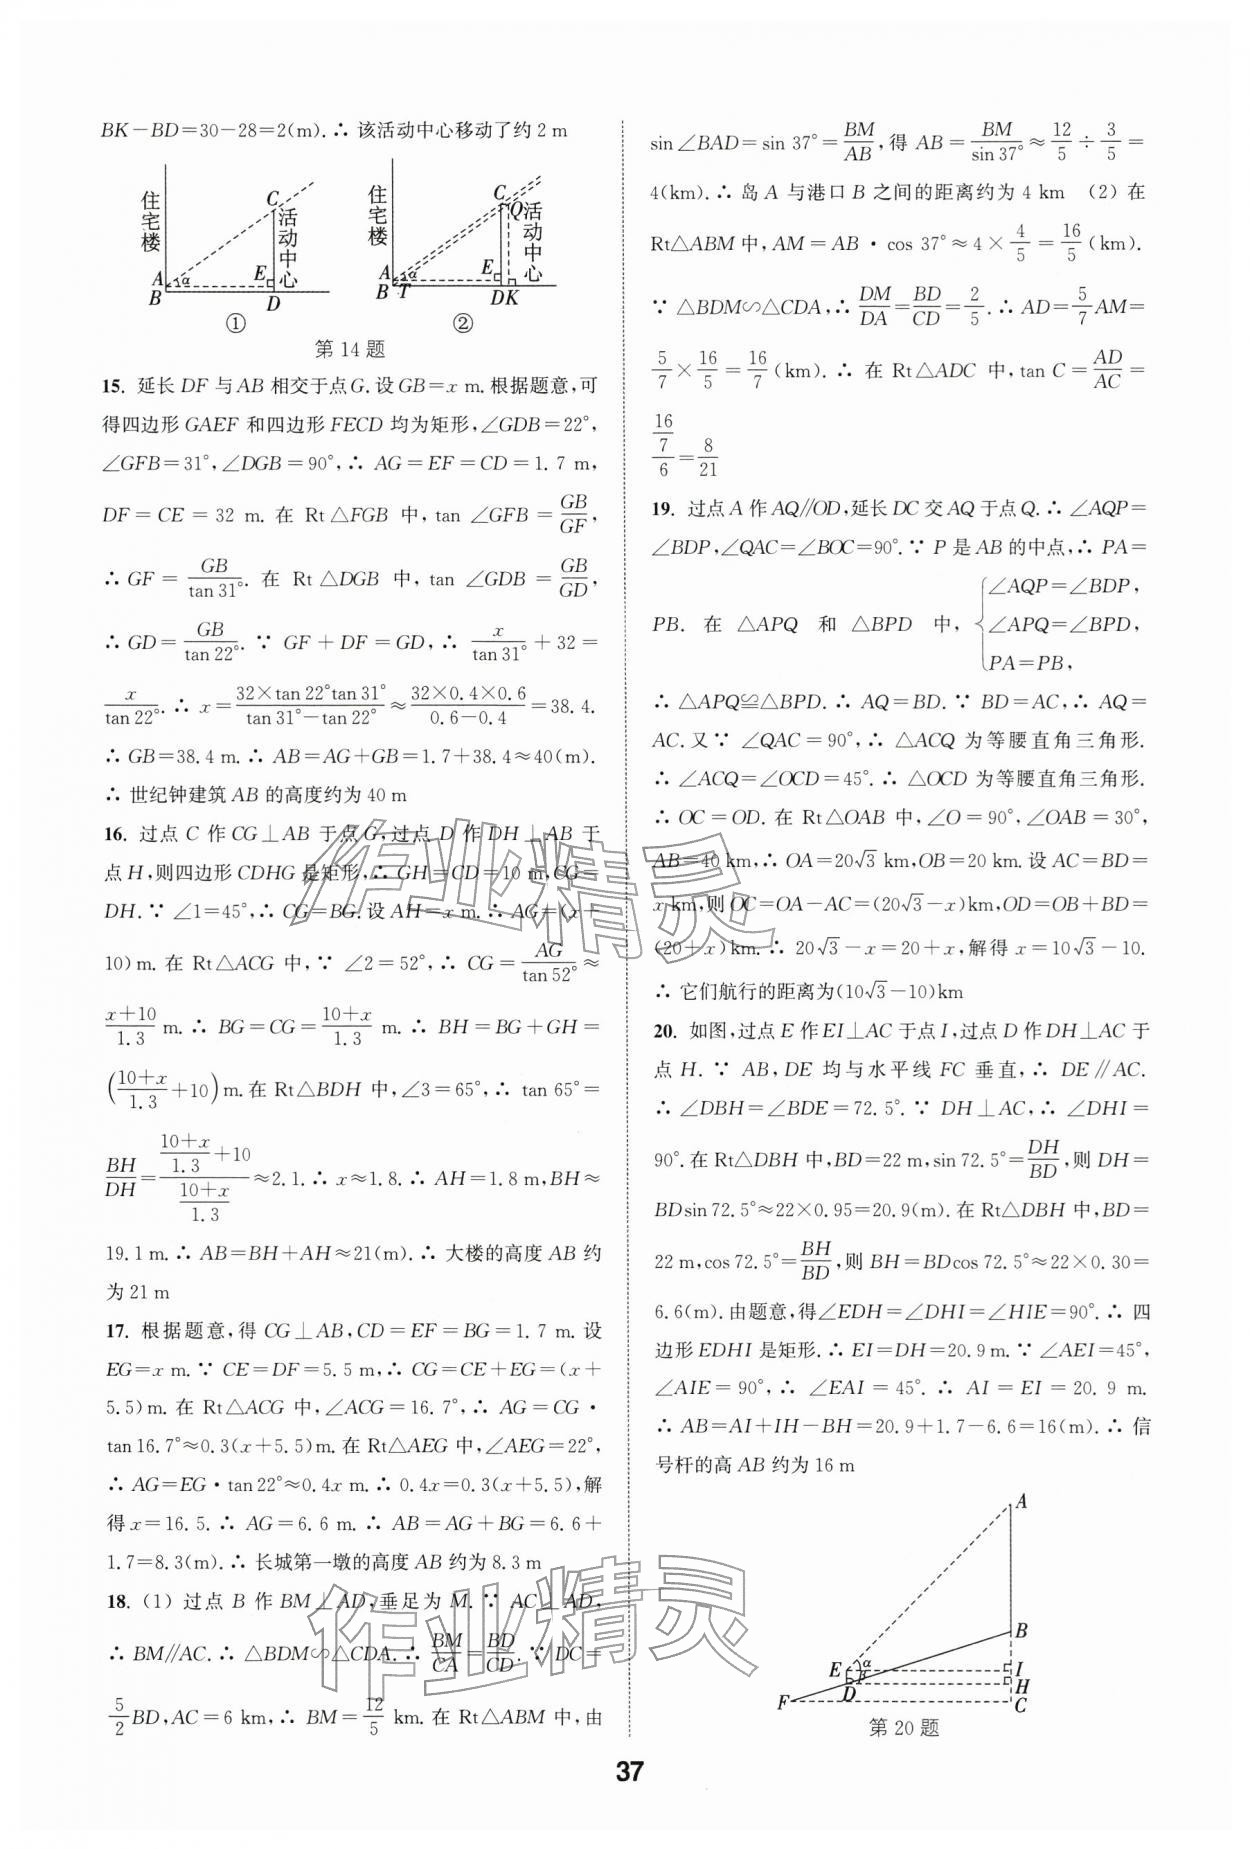 BK－BD＝30－28＝2(m).∴ 该活动中心移动了约 2 m
住宅楼
A
B
α
C
E
D
活动中心
①
住宅楼
A
B
T
α
C
Q
E
DK
活动中心
②
第 14 题
15. 延长 DF 与 AB 相交于点 G.设 GB＝x m.根据题意,可
得四边形 GAEF 和四边形 FECD 均为矩形,∠GDB＝22°,
∠GFB＝31°,∠DGB＝90°,∴ AG＝EF＝CD＝1.7 m,
DF＝CE＝32 m.在 Rt△FGB 中,tan ∠GFB＝GB/GF,
∴ GF＝GB/tan 31°.在 Rt△DGB 中,tan ∠GDB＝GB/GD,
∴ GD＝GB/tan 22°.∵ GF＋DF＝GD,∴ x/tan 31°＋32＝
x/tan 22°.∴ x＝(32×tan 22°tan 31°)/(tan 31°－tan 22°)≈(32×0.4×0.6)/(0.6－0.4)＝38.4.
∴ GB＝38.4 m.∴ AB＝AG＋GB＝1.7＋38.4≈40(m).
∴ 世纪钟建筑 AB 的高度约为 40 m
16. 过点 C 作 CG⊥AB 于点 G,过点 D 作 DH⊥AB 于
点 H,则四边形 CDHG 是矩形.∴ GH＝CD＝10 m,CG＝
DH.∵ ∠1＝45°,∴ CG＝BG.设 AH＝x m.∴ AG＝(x＋
10) m.在 Rt△ACG 中,∵ ∠2＝52°,∴ CG＝AG/tan 52°≈
(x＋10)/1.3 m.∴ BG＝CG＝(10＋x)/1.3 m.∴ BH＝BG＋GH＝
((10＋x)/1.3＋10)m.在 Rt△BDH 中,∠3＝65°,∴ tan 65°＝
BH/DH＝((10＋x)/1.3＋10)/((10＋x)/1.3)≈2.1.∴ x≈1.8.∴ AH＝1.8 m,BH≈
19.1 m.∴ AB＝BH＋AH≈21(m).∴ 大楼的高度 AB 约
为 21 m
17. 根据题意,得 CG⊥AB,CD＝EF＝BG＝1.7 m.设
EG＝x m.∵ CE＝DF＝5.5 m,∴ CG＝CE＋EG＝(x＋
5.5)m.在 Rt△ACG 中,∠ACG＝16.7°,∴ AG＝CG·
tan 16.7°≈0.3(x＋5.5)m.在 Rt△AEG 中,∠AEG＝22°,
∴ AG＝EG·tan 22°≈0.4x m.∴ 0.4x＝0.3(x＋5.5),解
得 x＝16.5.∴ AG＝6.6 m.∴ AB＝AG＋BG＝6.6＋
1.7＝8.3(m).∴ 长城第一墩的高度 AB 约为 8.3 m
18. (1) 过点 B 作 BM⊥AD,垂足为 M.∵ AC⊥AD,
∴ BM∥AC.∴ △BDM∽△CDA.∴ BM/CA＝BD/CD.∵ DC＝
5/2BD,AC＝6 km,∴ BM＝12/5 km.在 Rt△ABM 中,由
sin ∠BAD＝sin 37°＝BM/AB,得 AB＝BM/sin 37°≈12/5÷3/5＝
4(km).∴ 岛 A 与港口 B 之间的距离约为 4 km (2) 在
Rt△ABM 中,AM＝AB·cos 37°≈4×4/5＝16/5(km).
∵ △BDM∽△CDA,∴ DM/DA＝BD/CD＝2/5.∴ AD＝5/7AM＝
5/7×16/5＝16/7(km).∴ 在 Rt△ADC 中,tan C＝AD/AC＝
(16/7)/6＝8/21
19. 过点 A 作 AQ∥OD,延长 DC 交 AQ 于点 Q.∴ ∠AQP＝
∠BDP,∠QAC＝∠BOC＝90°.∵ P 是 AB 的中点,∴ PA＝
PB.在 △APQ 和 △BPD 中,{∠AQP＝∠BDP,
∠APQ＝∠BPD,
PA＝PB,
∴ △APQ≌△BPD.∴ AQ＝BD.∵ BD＝AC,∴ AQ＝
AC.又∵ ∠QAC＝90°,∴ △ACQ 为等腰直角三角形.
∴ ∠ACQ＝∠OCD＝45°.∴ △OCD 为等腰直角三角形.
∴ OC＝OD.在 Rt△OAB 中,∠O＝90°,∠OAB＝30°,
AB＝40 km,∴ OA＝20√3 km,OB＝20 km.设 AC＝BD＝
x km,则 OC＝OA－AC＝(20√3－x)km,OD＝OB＋BD＝
(20＋x)km.∴ 20√3－x＝20＋x,解得 x＝10√3－10.
∴ 它们航行的距离为(10√3－10)km
20. 如图,过点 E 作 EI⊥AC 于点 I,过点 D 作 DH⊥AC 于
点 H.∵ AB,DE 均与水平线 FC 垂直,∴ DE∥AC.
∴ ∠DBH＝∠BDE＝72.5°.∵ DH⊥AC,∴ ∠DHI＝
90°.在 Rt△DBH 中,BD＝22 m,sin 72.5°＝DH/BD,则 DH＝
BDsin 72.5°≈22×0.95＝20.9(m).在 Rt△DBH 中,BD＝
22 m,cos 72.5°＝BH/BD,则 BH＝BDcos 72.5°≈22×0.30＝
6.6(m).由题意,得∠EDH＝∠DHI＝∠HIE＝90°.∴ 四
边形 EDHI 是矩形.∴ EI＝DH＝20.9 m.∵ ∠AEI＝45°,
∠AIE＝90°,∴ ∠EAI＝45°.∴ AI＝EI＝20.9 m.
∴ AB＝AI＋IH－BH＝20.9＋1.7－6.6＝16(m).∴ 信
号杆的高 AB 约为 16 m
A
B
E
α
β
I
D
H
F
C
第 20 题
作业精灵
作业精灵
37